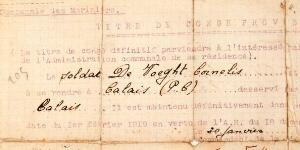 Compagnie des Mariniers.
TITRE DE CONGE PROV
Le titre de congé définitif parviendra à l'intéressé
de l'Administration communale de sa résidence).
Le soldat De Voeght Cornelis
se rendre à Calais (P.C) desservi
Calais. Il est maintenu définitivement dans
date du 1er février 1919 en vertu de l'A.R. du 18
20 janvier